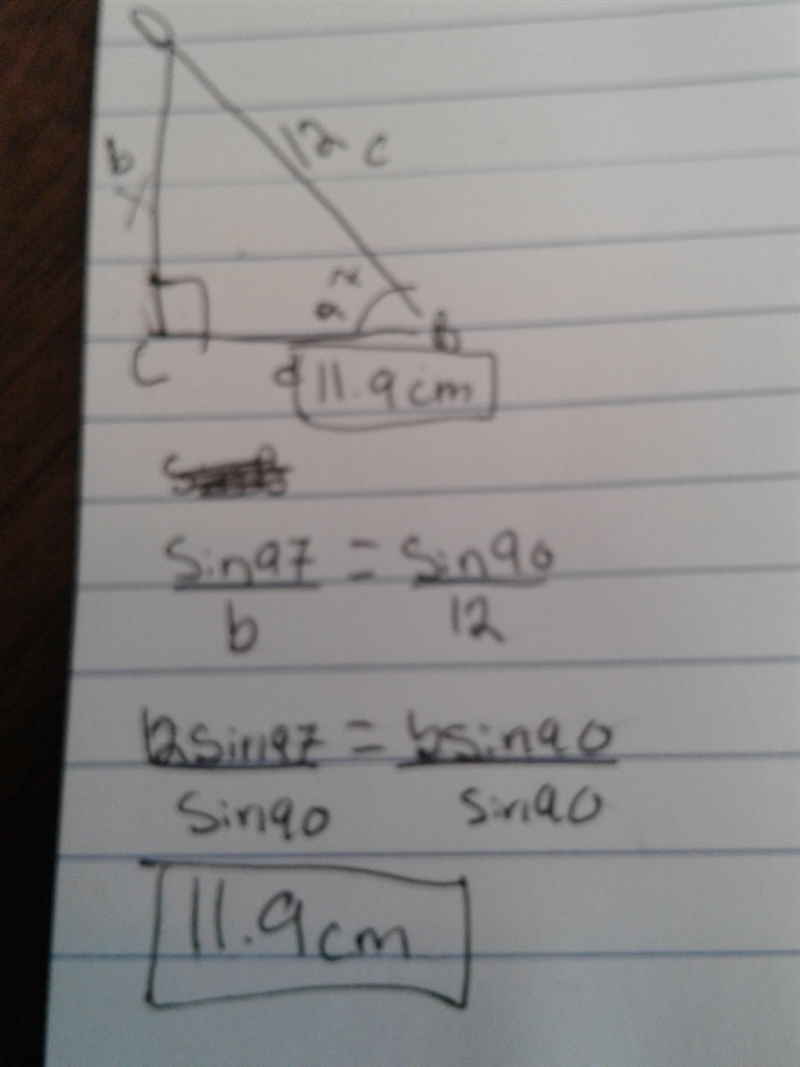 b
12 c
a
C
B
11.9cm
sin97 = sin90
b 12
12sin97 = bsin90
sin90 sin90
11.9cm